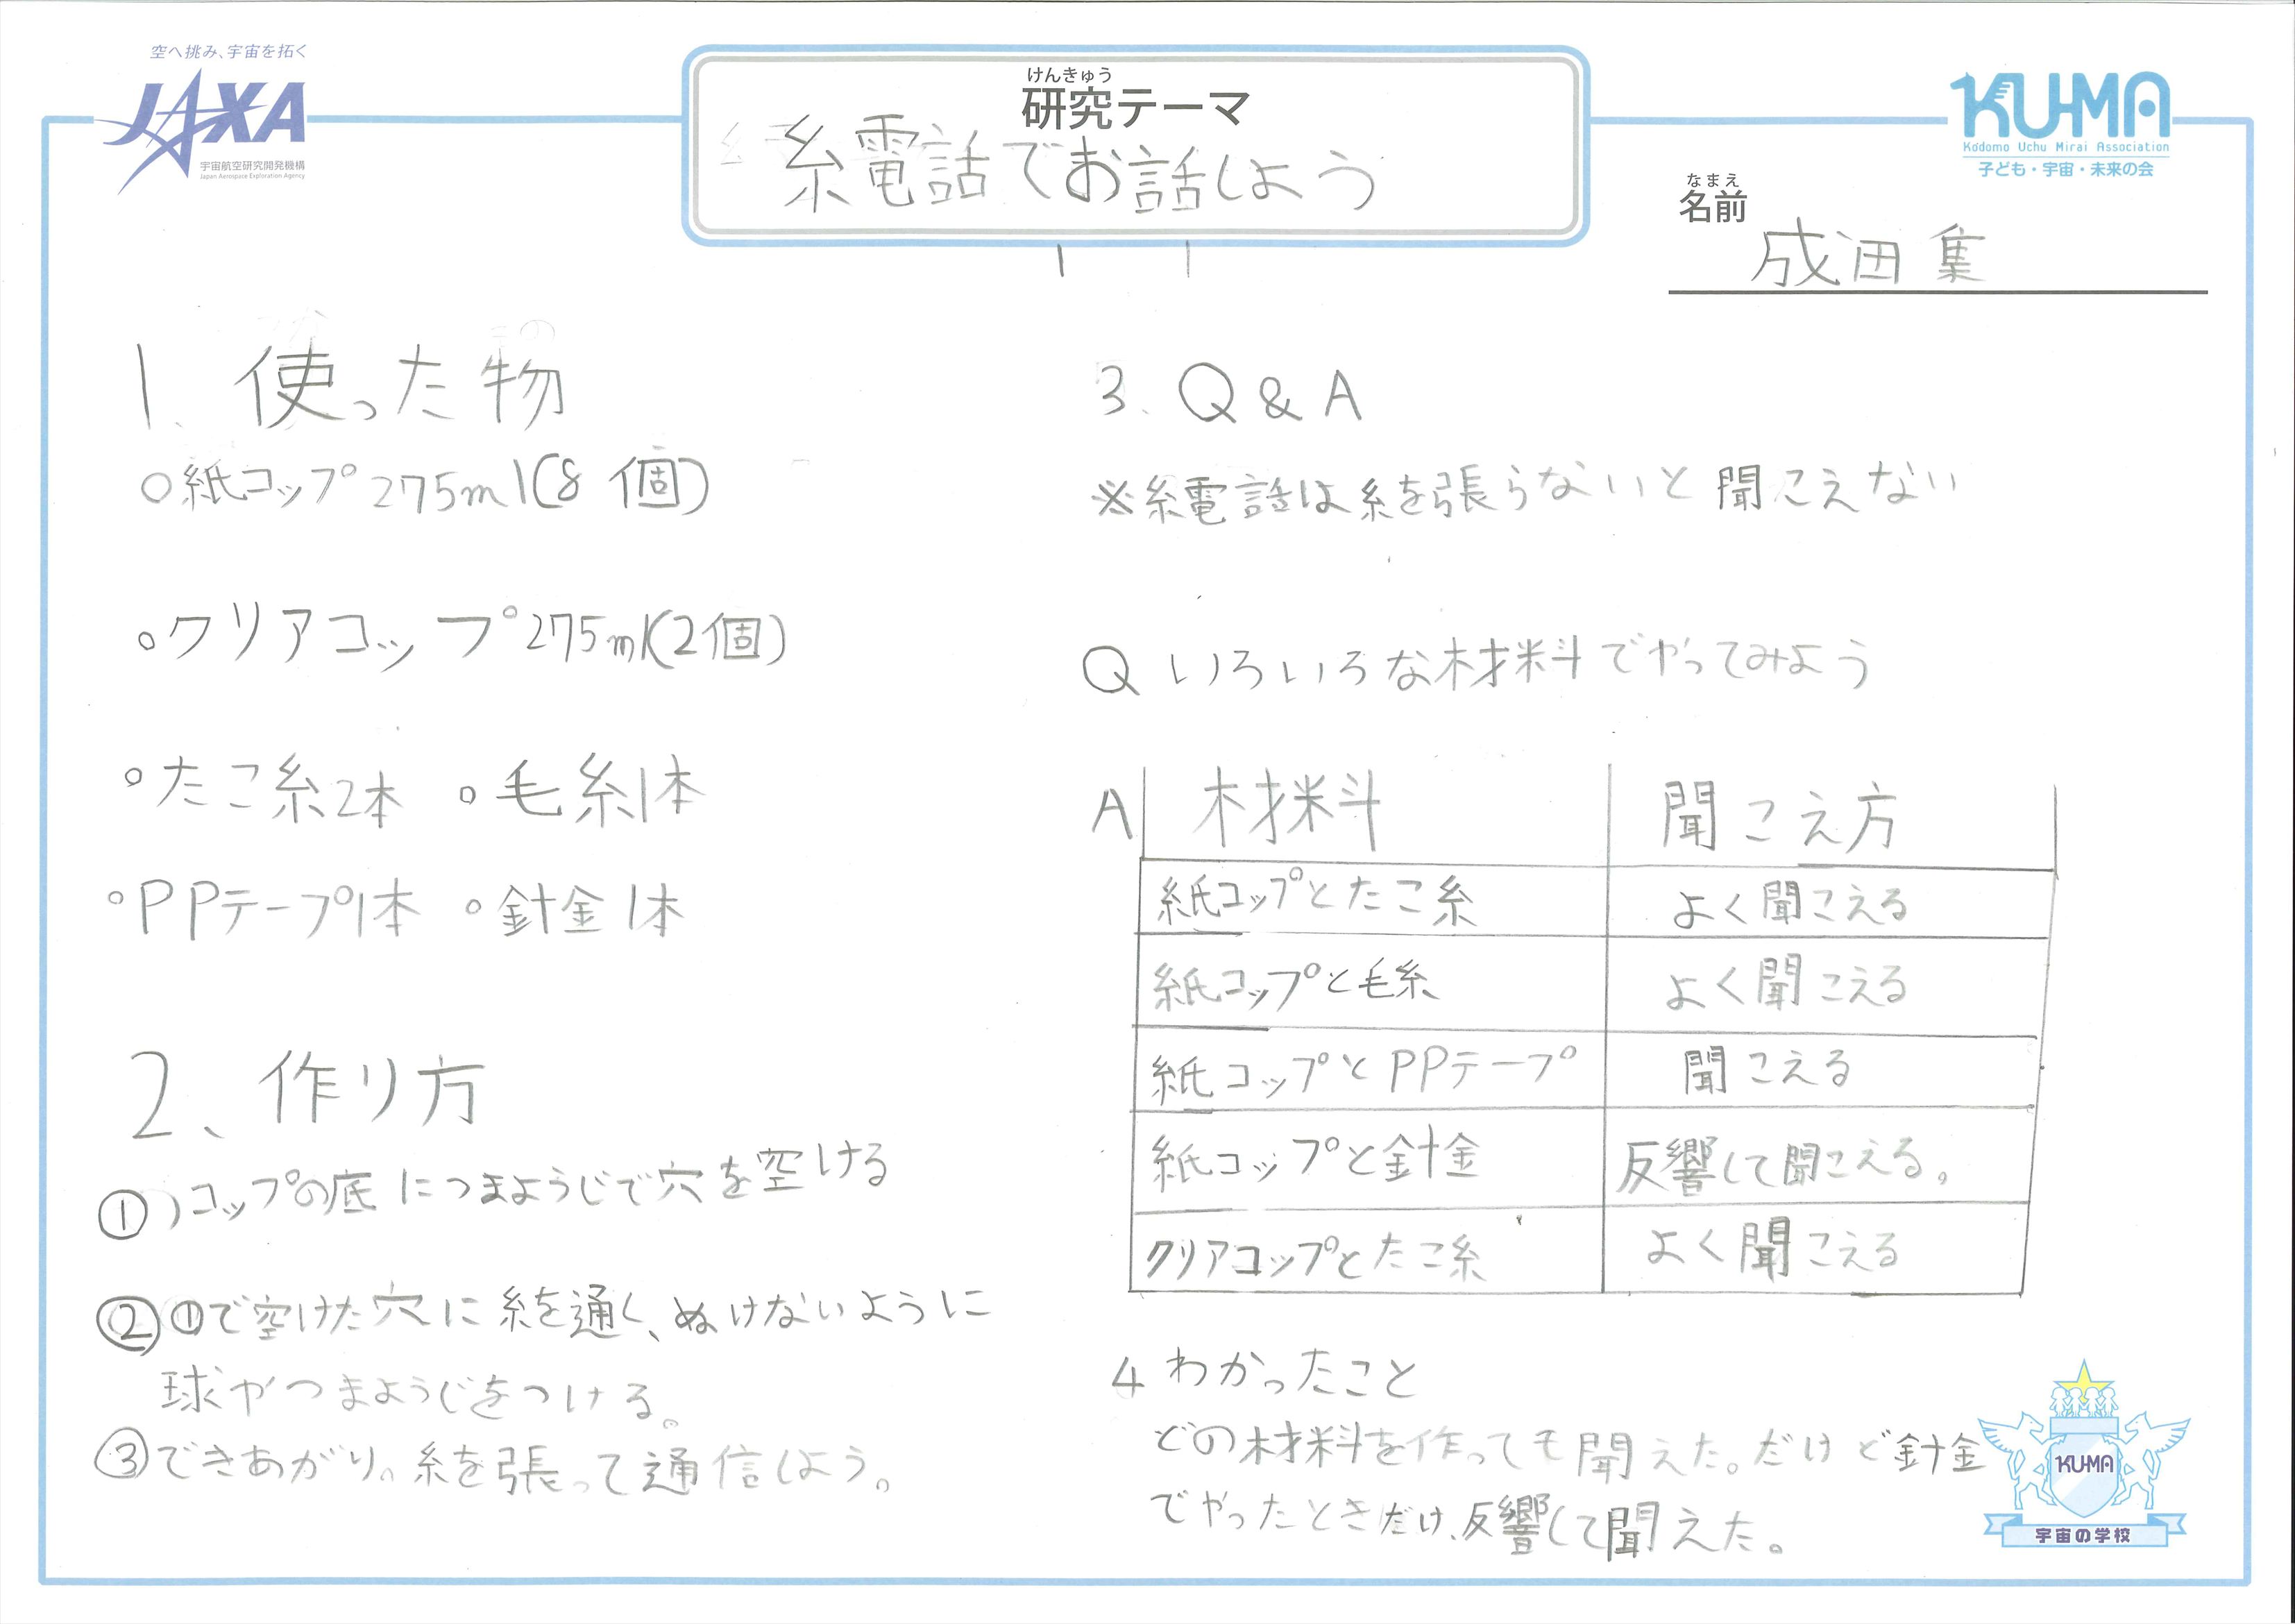 空へ挑み、宇宙を拓く
JAXA
宇宙航空研究開発機構
Japan Aerospace Exploration Agency
けんきゅう
研究テーマ
糸電話でお話しよう
KU-MA
Kodomo Uchu Mirai Association
子ども・宇宙・未来の会
なまえ
名前
成田 集
1、使った物
○紙コップ275ml(8個)
○クリアコップ275ml(2個)
○たこ糸2本 ○毛糸1本
○PPテープ1本 ○針金1本
2、作り方
①コップの底につまようじで穴を空ける
②①で空けた穴に糸を通し、ぬけないように
球やつまようじをつける。
③できあがり。糸を張って通信しよう。
3、Q&A
※糸電話は糸を張らないと聞こえない
Q いろいろな材料でやってみよう
A 材料 聞こえ方
紙コップとたこ糸 よく聞こえる
紙コップと毛糸 よく聞こえる
紙コップとPPテープ 聞こえる
紙コップと針金 反響して聞こえる。
クリアコップとたこ糸 よく聞こえる
4 わかったこと
どの材料を作っても聞えた。だけど針金
でやったときだけ、反響して聞えた。
KU-MA
宇宙の学校